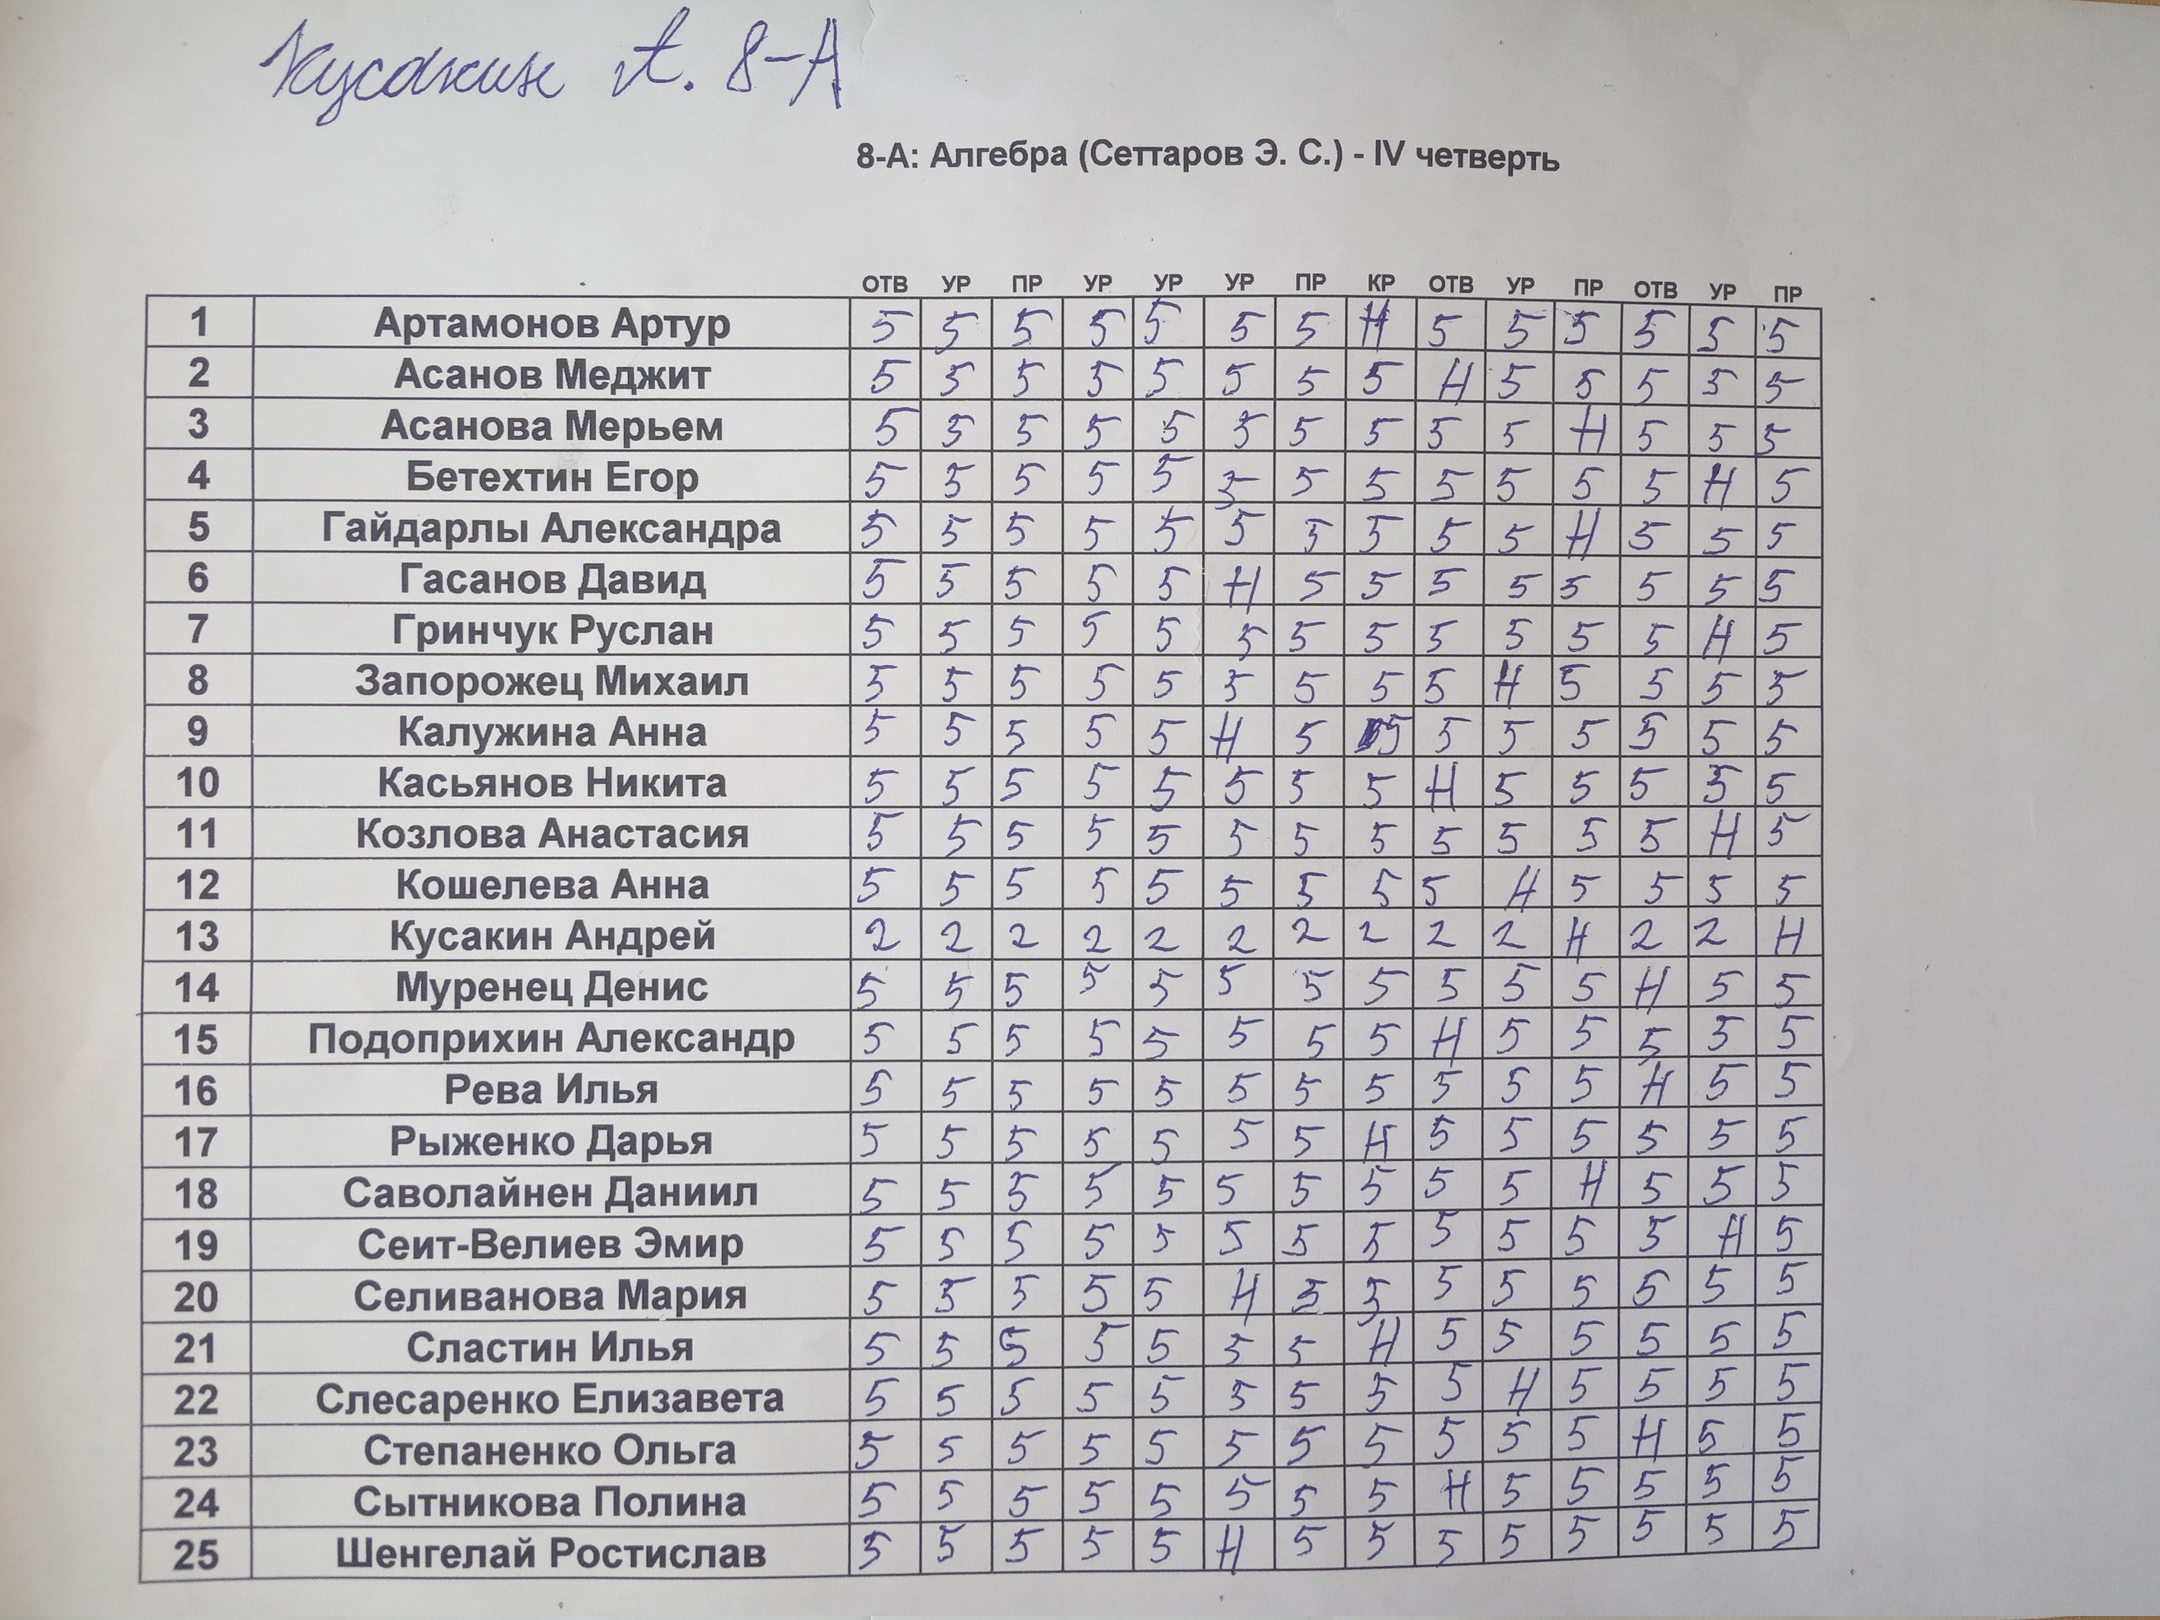 Кусакин А. 8-А
8-А: Алгебра (Сеттаров Э. С.) - IV четверть
ОТВ УР ПР УР УР УР ПР КР ОТВ УР ПР ОТВ УР ПР
1 Артамонов Артур 5 5 5 5 5 5 5 Н 5 5 5 5 5 5
2 Асанов Меджит 5 5 5 5 5 5 5 5 Н 5 5 5 5 5
3 Асанова Мерьем 5 5 5 5 5 5 5 5 5 5 Н 5 5 5
4 Бетехтин Егор 5 5 5 5 5 5 5 5 5 5 5 5 Н 5
5 Гайдарлы Александра 5 5 5 5 5 5 5 5 5 5 Н 5 5 5
6 Гасанов Давид 5 5 5 5 5 Н 5 5 5 5 5 5 5 5
7 Гринчук Руслан 5 5 5 5 5 5 5 5 5 5 5 5 Н 5
8 Запорожец Михаил 5 5 5 5 5 5 5 5 5 Н 5 5 5 5
9 Калужина Анна 5 5 5 5 5 Н 5 5 5 5 5 5 5 5
10 Касьянов Никита 5 5 5 5 5 5 5 5 Н 5 5 5 5 5
11 Козлова Анастасия 5 5 5 5 5 5 5 5 5 5 5 5 Н 5
12 Кошелева Анна 5 5 5 5 5 5 5 5 5 Н 5 5 5 5
13 Кусакин Андрей 2 2 2 2 2 2 2 2 2 2 Н 2 2 Н
14 Муренец Денис 5 5 5 5 5 5 5 5 5 5 5 Н 5 5
15 Подоприхин Александр 5 5 5 5 5 5 5 5 Н 5 5 5 5 5
16 Рева Илья 5 5 5 5 5 5 5 5 5 5 5 Н 5 5
17 Рыженко Дарья 5 5 5 5 5 5 5 Н 5 5 5 5 5 5
18 Саволайнен Даниил 5 5 5 5 5 5 5 5 5 5 Н 5 5 5
19 Сеит-Велиев Эмир 5 5 5 5 5 5 5 5 5 5 5 5 Н 5
20 Селиванова Мария 5 5 5 5 5 Н 5 5 5 5 5 5 5 5
21 Сластин Илья 5 5 5 5 5 5 5 Н 5 5 5 5 5 5
22 Слесаренко Елизавета 5 5 5 5 5 5 5 5 5 Н 5 5 5 5
23 Степаненко Ольга 5 5 5 5 5 5 5 5 5 5 5 Н 5 5
24 Сытникова Полина 5 5 5 5 5 5 5 5 Н 5 5 5 5 5
25 Шенгелай Ростислав 5 5 5 5 5 Н 5 5 5 5 5 5 5 5